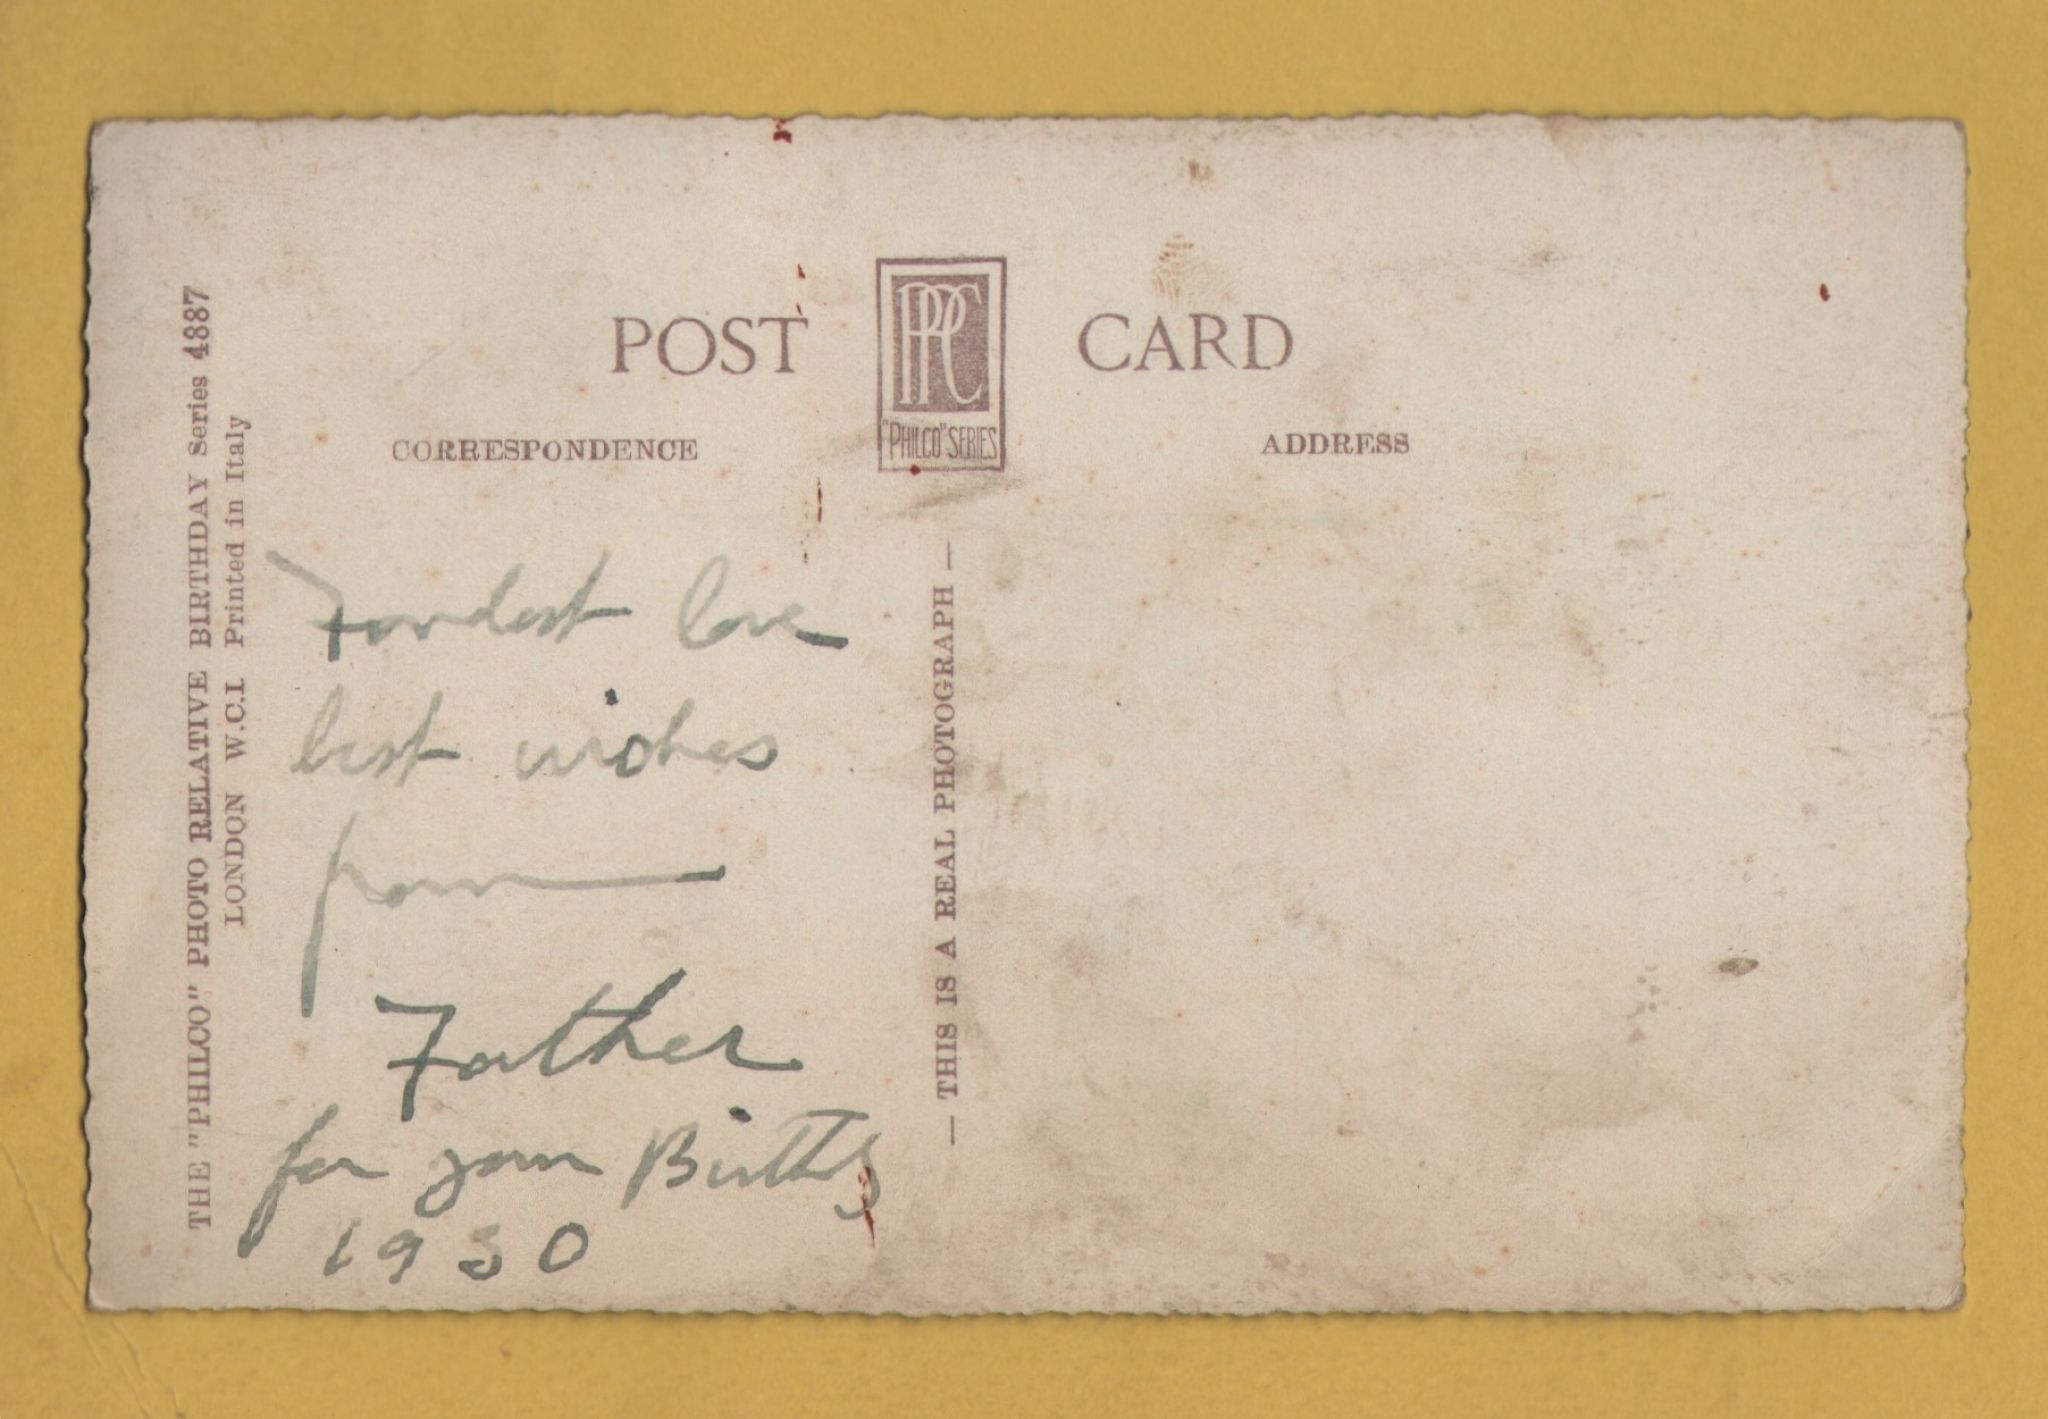 THE "PHILCO" PHOTO RELATIVE BIRTHDAY Series 4887
LONDON W.C.I Printed in Italy
POST CARD
PPC
"PHILCO" SERIES
CORRESPONDENCE
ADDRESS
— THIS IS A REAL PHOTOGRAPH —
Fondest love
best wishes
from
Father
for your Birthdy
1930